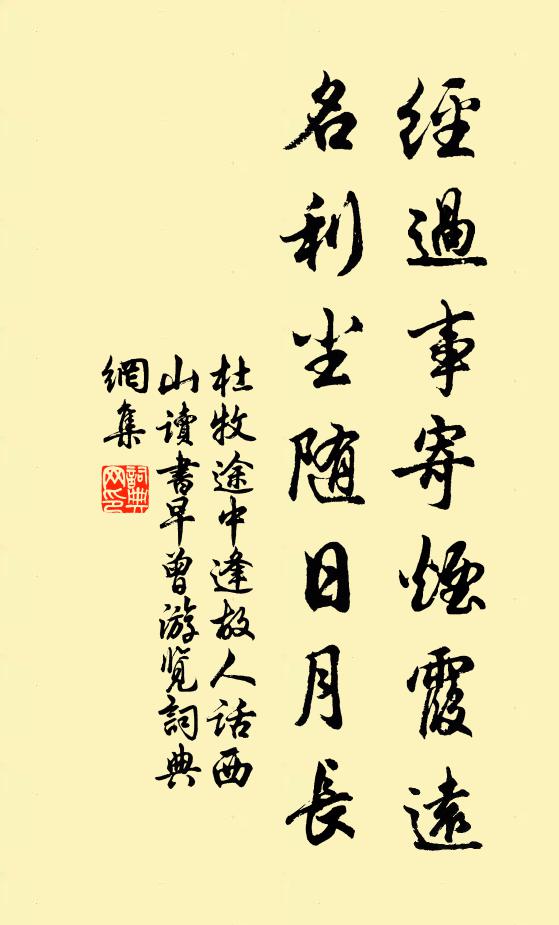 經過事寄煙霞遠
名利尘随日月長
杜牧途中逢故人话西
山讀書早曾游览詞典
網集
詞典网印